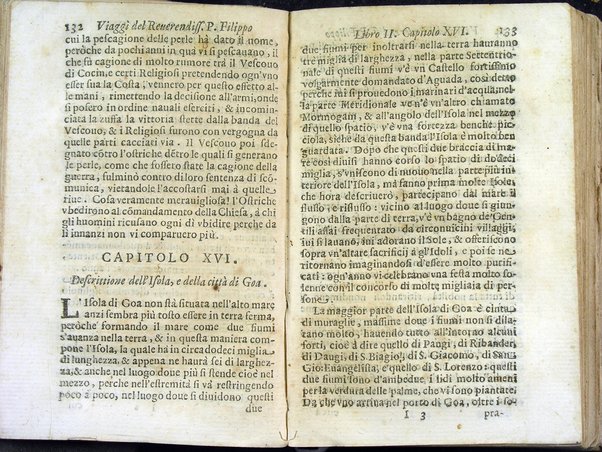 132 Viaggi del Reuerendiss. P. Filippo
cui la pescagione delle perle hà dato il nome,
peròche da pochi anni in quà vi si pescauano, il
che fù cagione di molto rumore trà il Vescouo
di Cocin, e certi Religiosi pretendendo ogn'vno
esser sua la Costa; vennero per questo effetto al-
le mani, rimettendo la decisione all'armi, onde
si posero in ordine nauali eserciti, & incomin-
ciata la zuffa la vittoria stette dalla banda del
Vescouo, & i Religiosi furono con vergogna da
quelle parti cacciati via. Il Vescouo poi sde-
gnato cõtro l'ostriche dẽtro le quali si generano
le perle, come che fossero state la cagione della
guerra, fulminò contro di loro sentenza di scõ-
munica, vietandole l'accostarsi mai à quelle
riue. Cosa veramente merauigliosa! l'Ostriche
vbedirono al cõmandamento della Chiesa, à chi
gli huomini ricusano ogni dì vbidire perche da
lì innanzi non vi comparuero più.
CAPITOLO XVI.
Descrittione dell'Isola, e della città di Goa.
L'Isola di Goa non stà situata nell'alto mare
anzi sembra più tosto essere in terra ferma,
peròche formando il mare come due fiumi
s'auanza nella terra, & in questa maniera com-
pone l'Isola, la quale hà in circa dodeci miglia
di lunghezza, & appena ne haurà sei di larghez-
za, & anche nel luogo doue più si stende cioè nel
mezzo, perche nell'estremità si và restringendo
poco a poco, nel luogo doue si diuidono questi
due
Libro II. Capitolo XVI. 133
due fiumi per inoltrarsi nella terra hauranno
tre miglia di larghezza, nella parte Settentrio-
nale di questi fiumi v'è vn Castello fortissimo
volgarmente domandato d'Aguada, così detto
perche mi si prouedono i marinari d'acqua, nel-
la parte Meridionale ve n'è vn'altro chiamato
Mormogani, & all'angolo dell'Isola nel mezzo
di quello spatio, v'è vna fortezza benchè pic-
ciola, siche da questa banda l'Isola è molto ben
guardata. Dopo che questi due braccia di ma-
re così diuisi hanno corso lo spatio di dodeci
miglia, s'vniscono di nuouo nella parte più in-
teriore dell'Isola, mà fanno prima molte Isole,
che hora descriuerò, partecipando dal mare il
flusso, e riflusso: vicino al luogo doue si giun-
gono dalla parte di terra, v'è vn bagno de'Gen-
tili assai frequentato da circonuicini villaggi,
iui si lauano, iui adorano il Sole, & offeriscono
sopra vn'altare sacrificij a gl'Idoli, e poi se ne
ritornano imaginandosi d'essere molto purifi-
cati: ogn'anno vi celebrano vna festa molto so-
lenne con il concorso di molte migliaia di per-
sone.
La maggior parte dell'Isola di Goa è cinta
di muraglie, massime doue i fiumi non si dila-
tano molto, hauendo tutto all'intorno alcuni
forti, cioè à dire quello di Paugi, di Ribander,
di Daugi, di S. Biagio, di S. Giacomo, di San
Gio: Euangelista, e quello di S. Lorenzo: questi
due fiumi sono d'ambedue, i lidi molto ameni
per la verdura delle palme, che vi sono piantate.
Da che vno arriua nel porto di Goa, oltre i so-
I 3 pra-